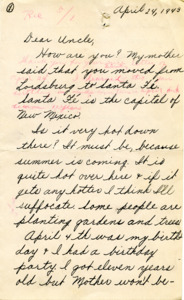 April 24, 1943
Dear Uncle,
How are you? My mother
said that you moved from
Lordsburg to Santa Fe
Santa Fe is the capital of
New Mexico.
Is it very hot down
there? It must be, because
summer is coming. It is
quite hot over here & if it
gets any hotter I think I'll
suffocate some people are
planting gardens and trees
April 4th was my birth
day & I had a birthday
party I got eleven years
old but Mother won't be-